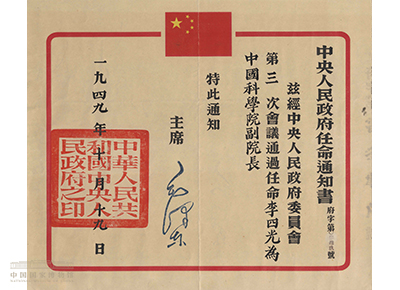 中央人民政府任命通知書
府字第號
茲經中央人民政府委員會
第三次會議通過任命李四光為
中國科學院副院長
特此通知
主席
毛澤東
一九四九年十月十九日
中華人民共
和國中央人
民政府之印